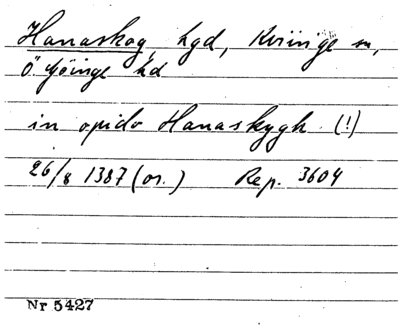 Hanaskog, hgd, Kviinge sn,
Ö Göinge hd
in opido Hanaskygh (!)
26/8 1387 (or.) Rep. 3604
Nr 5427